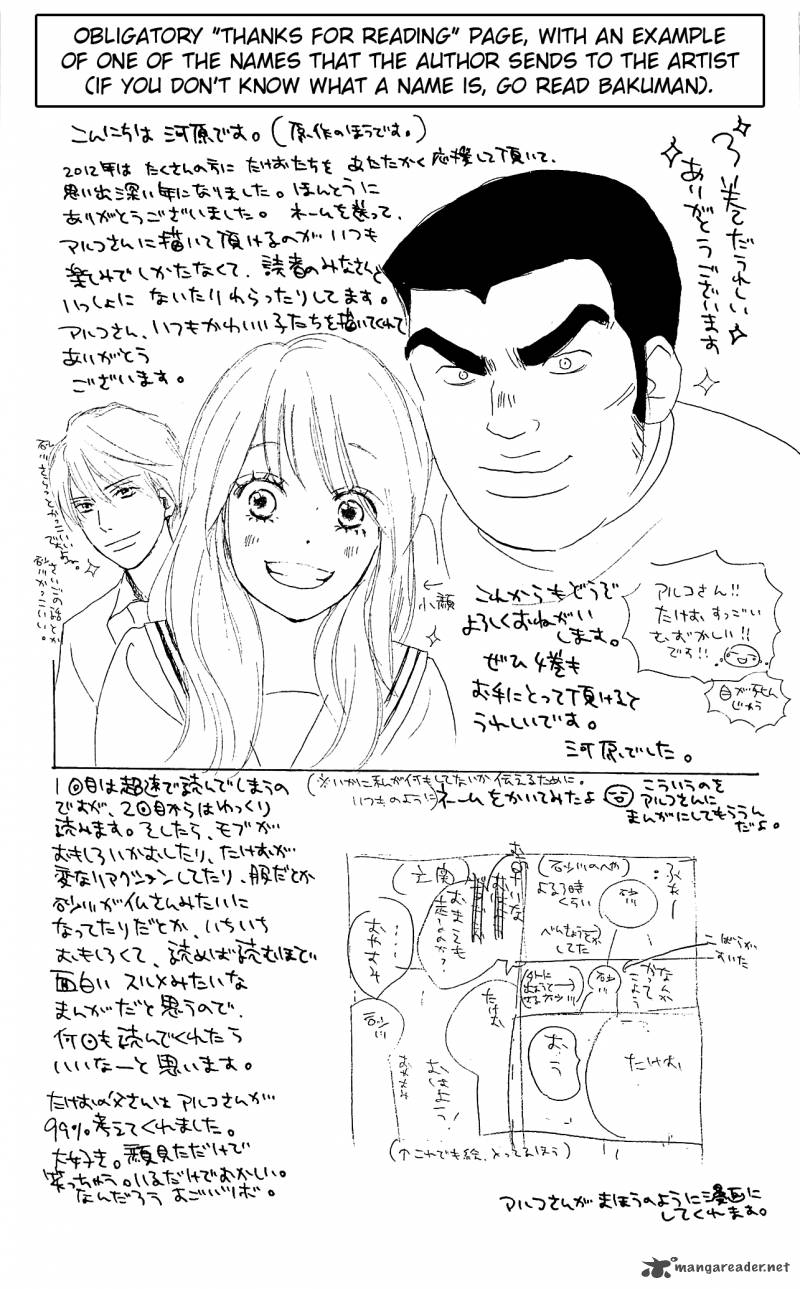 OBLIGATORY "THANKS FOR READING" PAGE, WITH AN EXAMPLE
OF ONE OF THE NAMES THAT THE AUTHOR SENDS TO THE ARTIST
(IF YOU DON'T KNOW WHAT A NAME IS, GO READ BAKUMAN).
こんにちは 河原です。(原作のほうです。)
2012年は たくさんの方に たけおたちを あたたかく応援して頂いて、
思い出深い年になりました。ほんとうに
ありがとうございました。 ネームを送って、
アルコさんに描いて頂けるのがいつも
楽しみでしかたなくて、読者のみなさんと
いっしょに ないたりわらったりしてます。
アルコさん、いつもかわいい子たちを描いてくれて
ありがとう
ございます。
3巻だうれしい
ありがとう
ございます
砂川さらっとかっこいい
さいごの話とか
砂川かっこいい。
←
小顔
これからもどうぞ
よろしくおねがい
します。
ぜひ 4巻も
お手にとって頂けると
うれしいです。
河原でした。
アルコさん!!
たけお、すっごい
むずかしい!!
です!!
1回目は超速で読んでしまうの
ですが、2回目からはゆっくり
読みます。そしたら、モブが
おもしろいかおしたり、たけおが
変なリアクションしてたり、服だとか
砂川が仏さんみたいに
なってたりだとか、いちいち
おもしろくて、読めば読むほど
面白い スルメみたいな
まんがだと思うので、
何回も読んでくれたら
いいなーと思います。
たけおの父さんは アルコさんが
99%考えてくれました。
大好き。顔見ただけで
笑っちゃう。いるだけでおかしい。
なんだろう あごがツボ。
(※いかに私が何もしてないか伝えるために、
いつものように)ネームをかいてみたよ
こういうのを
アルコさんに
まんがにしてもらうん
だよ。
(砂川のへや)
よる7時
くらい
砂川
べんきょうとか
してた
ふもー
なんか
かって
こよう
砂川
たけお
おう
(玄関)
おまえも
走るのか?
……
おやすみ
砂川
たけお
おはよう!
おやすみ
(↑これでも絵、とってるほう)
アルコさんが まほうのように漫画に
してくれます。
mangareader.net